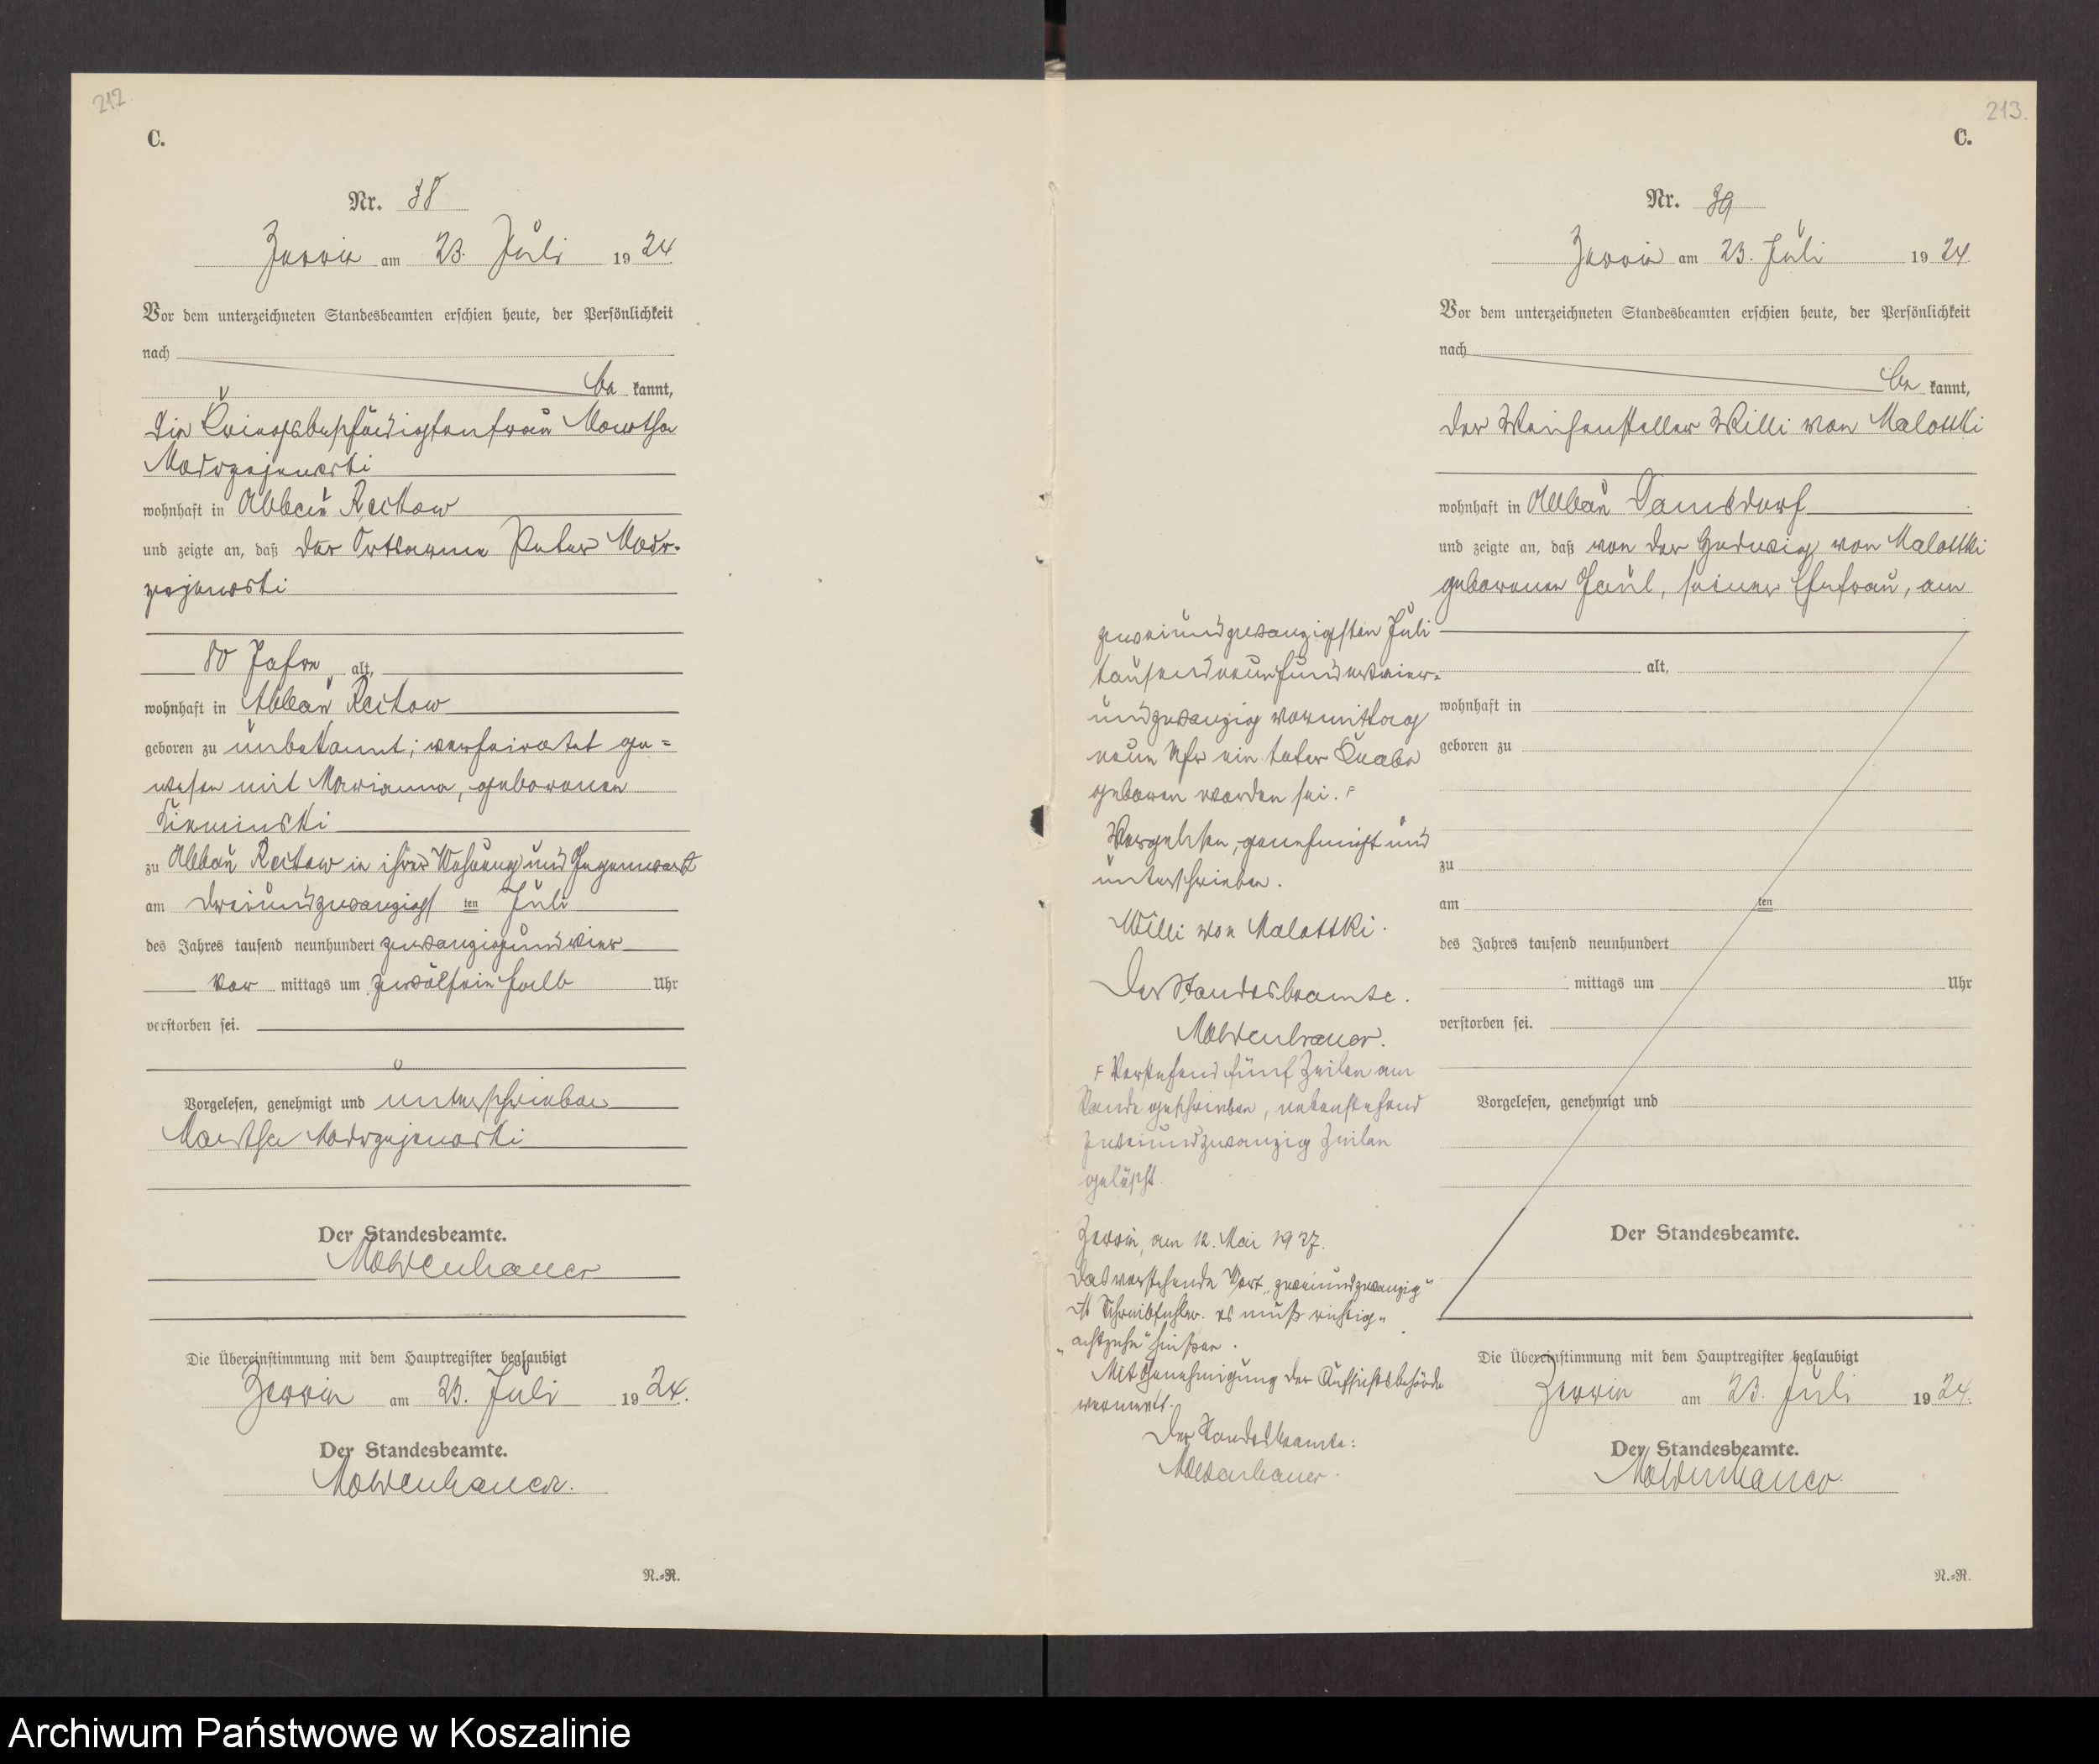 212
C.
Nr. 38
Zerrin am 23. Juli 1924.
Vor dem unterzeichneten Standesbeamten erschien heute, der Persönlichkeit
nach
be kannt,
die Kriegsbeschädigtenfrau Martha
Modrzejewski
wohnhaft in Abbau Reckow
und zeigte an, daß der Ortsarme Peter Modr-
zejewski
80 Jahre alt,
wohnhaft in Abbau Reckow
geboren zu unbekannt; verheiratet ge=
wesen mit Marianna, geborenen
zu Abbau Reckow in ihrer Wohnung und Gegenwart
am dreiundzwanzigsten Juli
des Jahres tausend neunhundert zwanzigundvier
Vor mittags um zwölfeinhalb Uhr
verstorben sei.
Vorgelesen, genehmigt und unterschrieben
Martha Modrzejewski
Der Standesbeamte.
Moldenhauer
Die Übereinstimmung mit dem Hauptregister beglaubigt
Zerrin am 23. Juli 1924.
Der Standesbeamte.
Moldenhauer.
N.=R.
213.
C.
Nr. 39
Zerrin am 23. Juli 1924
Vor dem unterzeichneten Standesbeamten erschien heute, der Persönlichkeit
nach
be kannt,
der Weichensteller Willi von Malottki
wohnhaft in Abbau Damsdorf
und zeigte an, daß von der Hedwig von Malottki
geborenen Jaul, seiner Ehefrau, am
zweiundzwanzigsten Juli
tausendneunhundertvier-
undzwanzig vormittag
neun Uhr ein toter Knabe
geboren worden sei. F
Vorgelesen, genehmigt und
unterschrieben.
Willi von Malottki.
Der Standesbeamte.
Moldenhauer.
F Vorstehend fünf Zeilen am
Rande geschrieben, nebenstehend
zweiundzwanzig Zeilen
gelöscht.
Zerrin, am 12. Mai 1927.
Das vorstehende Wort „zweiundzwanzig"
ist Schreibfehler. es muß richtig
„achtzehn" heißen.
Mit Genehmigung der Aufsichtsbehörde
vermerkt.
Der Standesbeamte:
Moldenhauer.
alt,
wohnhaft in
geboren zu
zu
am ten
des Jahres tausend neunhundert
mittags um Uhr
verstorben sei.
Vorgelesen, genehmigt und
Der Standesbeamte.
Die Übereinstimmung mit dem Hauptregister beglaubigt
Zerrin am 23. Juli 1924.
Der Standesbeamte.
Moldenhauer.
N.=R.
Archiwum Państwowe w Koszalinie